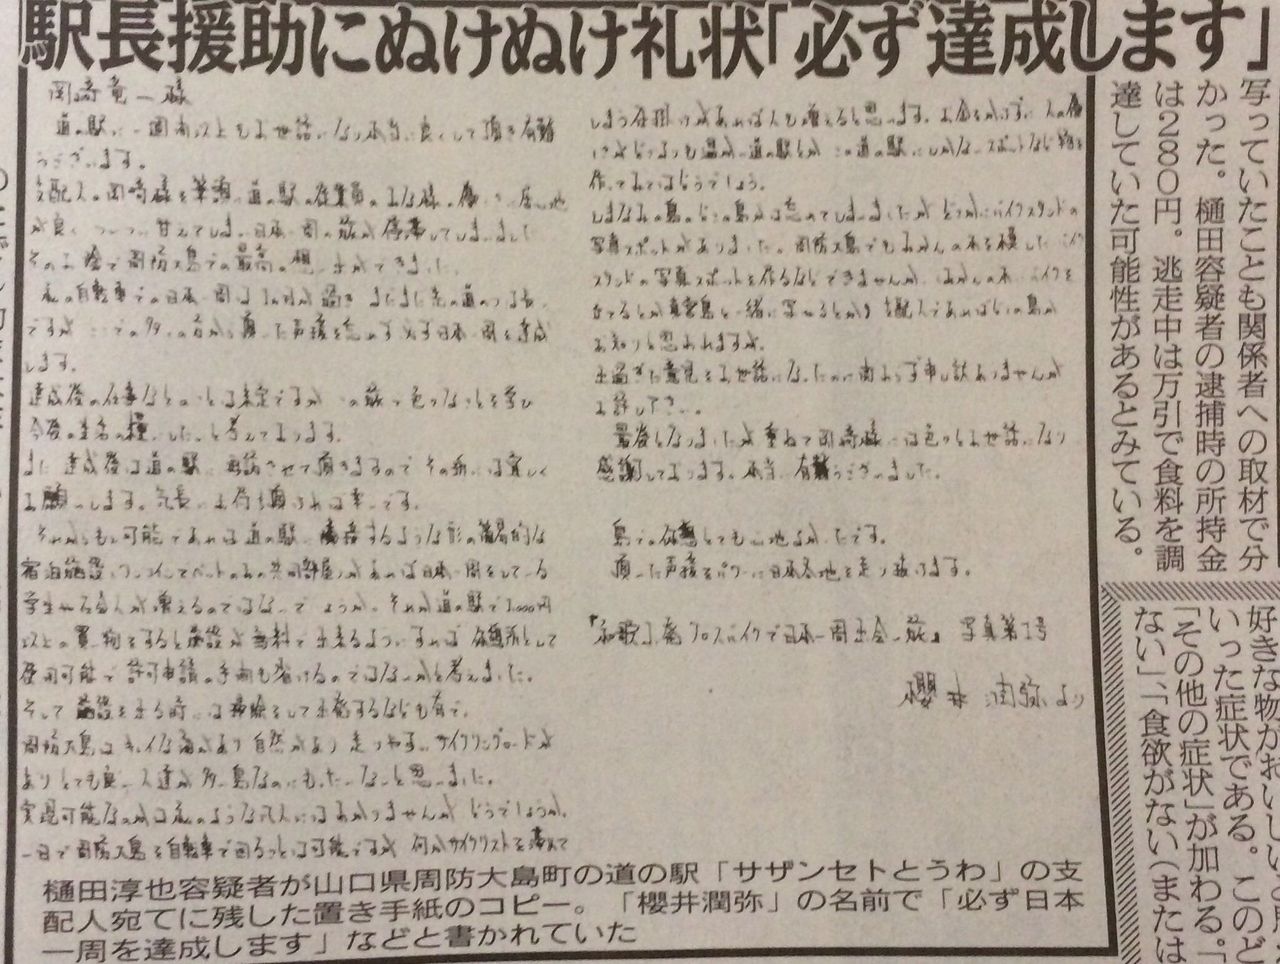 駅長援助にぬけぬけ礼状「必ず達成します」
岡崎竜一様
道の駅に一週間以上もお世話になり本当に良くして頂き有難
うございます。
支配人の岡崎様を筆頭に道の駅の従業員のみな様の優しさ居心地
が良くついつい甘えてしまい日本一周の旅が停滞してしまいました
そのお陰で周防大島での最高の想い出ができました。
私の自転車での日本一周は
ですが ここでの多くの方から頂いた声援を忘れず必ず日本一周を達成
します。
達成後の仕事などのことは未定ですが この旅で色々なことを学び
今後の生活の糧にしたいと考えております。
また達成後は道の駅に再訪させて頂きますので その折には宜しく
お願いします。気長にお待ち頂ければ幸いです。
それからもし可能であれば道の駅に隣接するような形の簡易的な
宿泊施設(ワンコインでベットのみの共同部屋)があれば日本一周をしている
学生や社会人が増えるのではないでしょうか。それか道の駅で1,000円
以上の買い物をすると施設が無料で出来るようにすれば 休憩所として
使用可能で許可申請の手間も省けるのではないかと考えました。
そして施設を出る時には掃除をして出発するなども有で。
周防大島はキレイな海があり自然があり走りやすいサイクリングロードが
ありとても良い人達が多い島なのにもったいないと思いました。
実現可能なのかは私のような凡人にはわかりませんが どうでしょうか。
一日で周防大島を自転車で回ることは可能ですが 何かサイクリストを
しまう仕掛けがあれば人も増えると思います。お金をかけずに人の優
しさがどこよりも温かい道の駅とか この道の駅にしかないスポットなど物を
作ってみてはどうでしょう。
しまなみの島のどこの島かは忘れてしまいましたが どこかにバイクスタンドの
写真スポットがありました。周防大島でもみかんの木を模したバイク
スタンドの写真スポットを作るなどできませんか。みかんの木にバイクを
立てるとか真宮島と一緒に写せるとか 支配人であればいい島が
お知りと思われますが。
出過ぎた意見をお世話になったのに関わらず申し訳ありませんが
お許し下さい。
最後となりましたが重ねて岡崎様には色々とお世話になり
感謝しております。本当に有難うございました。
島での休憩とても心地よかったです。
頂いた声援をパワーに日本各地を走り抜けます。
『和歌山発クロスバイクで日本一周出会い旅』 写真第1号
櫻井潤弥より
樋田淳也容疑者が山口県周防大島町の道の駅「サザンセトとうわ」の支
配人宛てに残した置き手紙のコピー。「櫻井潤弥」の名前で「必ず日本
一周を達成します」などと書かれていた
写っていたことも関係者への取材で分
かった。樋田容疑者の逮捕時の所持金
は280円。逃走中は万引で食料を調
達していた可能性があるとみている。
好きな物がおいしい
いった症状である。このど
「その他の症状」が加わる。「
ない」、「食欲がない(または